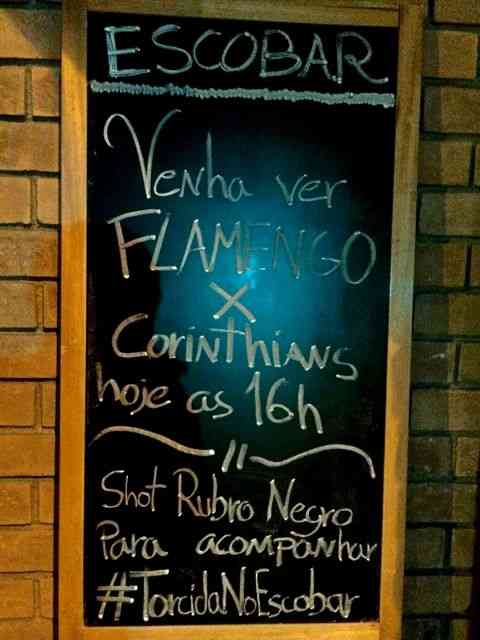 ESCOBAR
Venha ver
FLAMENGO
X
Corinthians
hoje as 16h
Shot Rubro Negro
Para acompanhar
#TorcidaNoEscobar